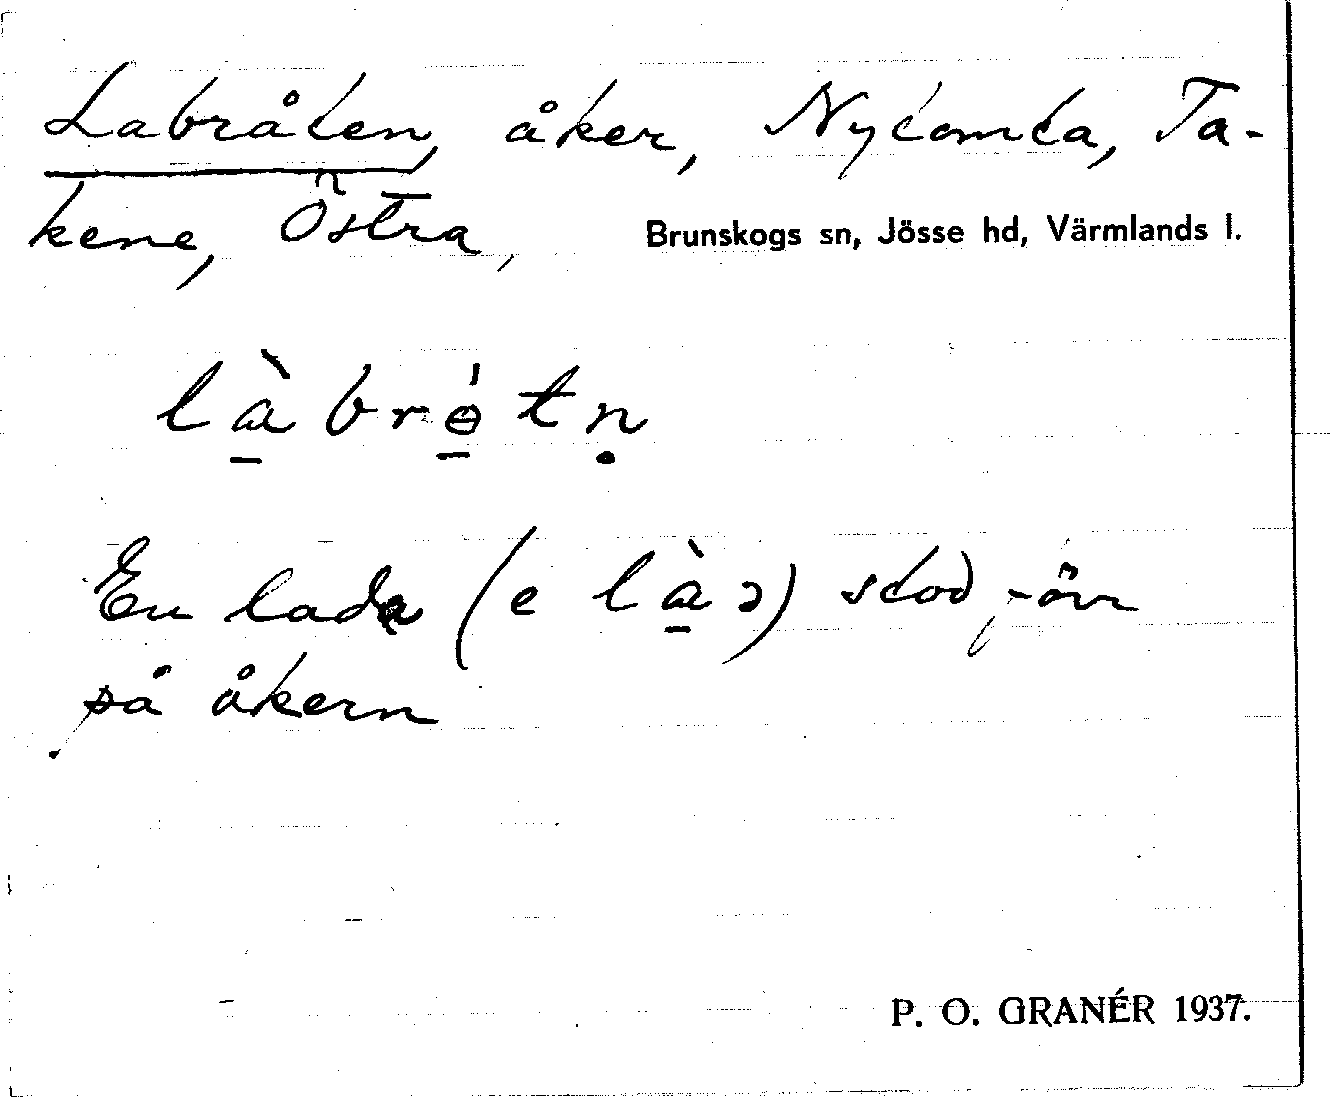 Labråten, åker, Nytomta, Ta-
kene, Östra, Brunskogs sn, Jösse hd, Värmlands l.
là̱brɵ̱́tṇ
En lada (e là̱ə) stod förr
på åkern
P. O. GRANÉR 1937.